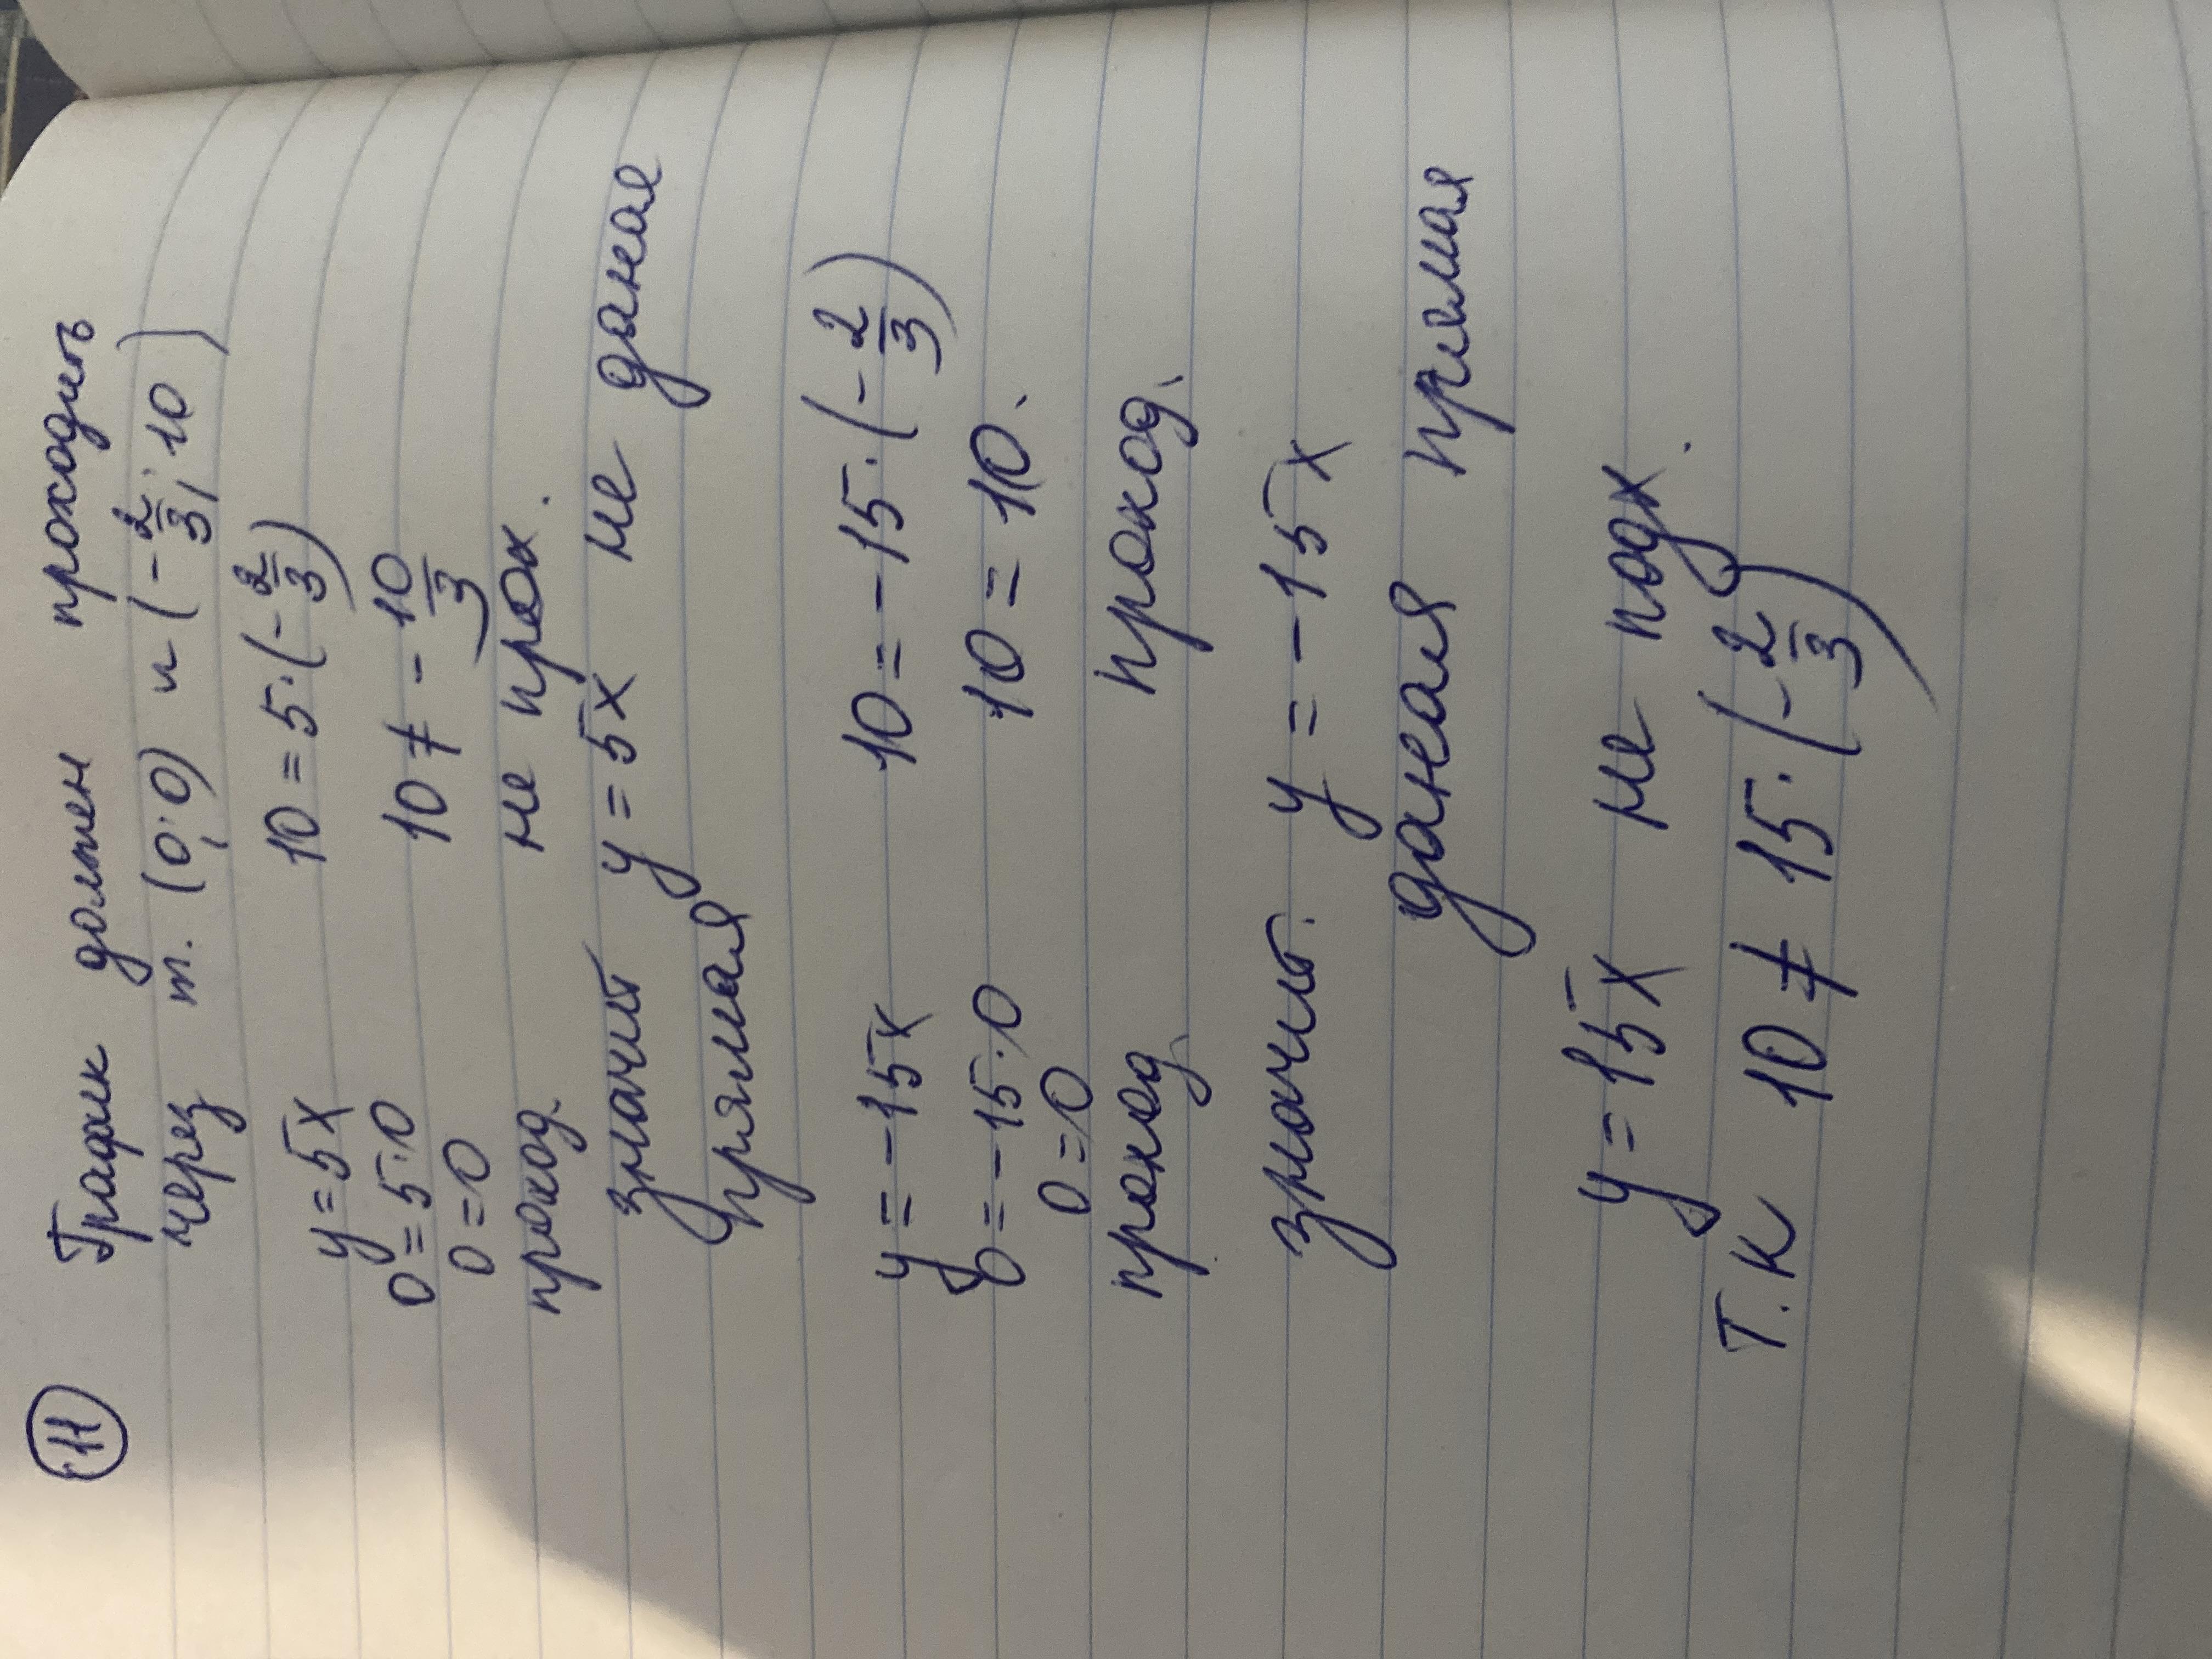 11 График должен проходить
через т. (0; 0) и (-2/3; 10)
y = 5x 10 = 5·(-2/3)
0 = 5·0 10 ≠ -10/3
0 = 0
проход. не прох.
значит y = 5x не даная
прямая
y = -15x 10 = -15·(-2/3)
0 = -15·0 10 = 10.
0 = 0
проход проход.
значит. y = -15x
даная прямая
y = 15x не подх.
Т.К 10 ≠ 15·(-2/3)